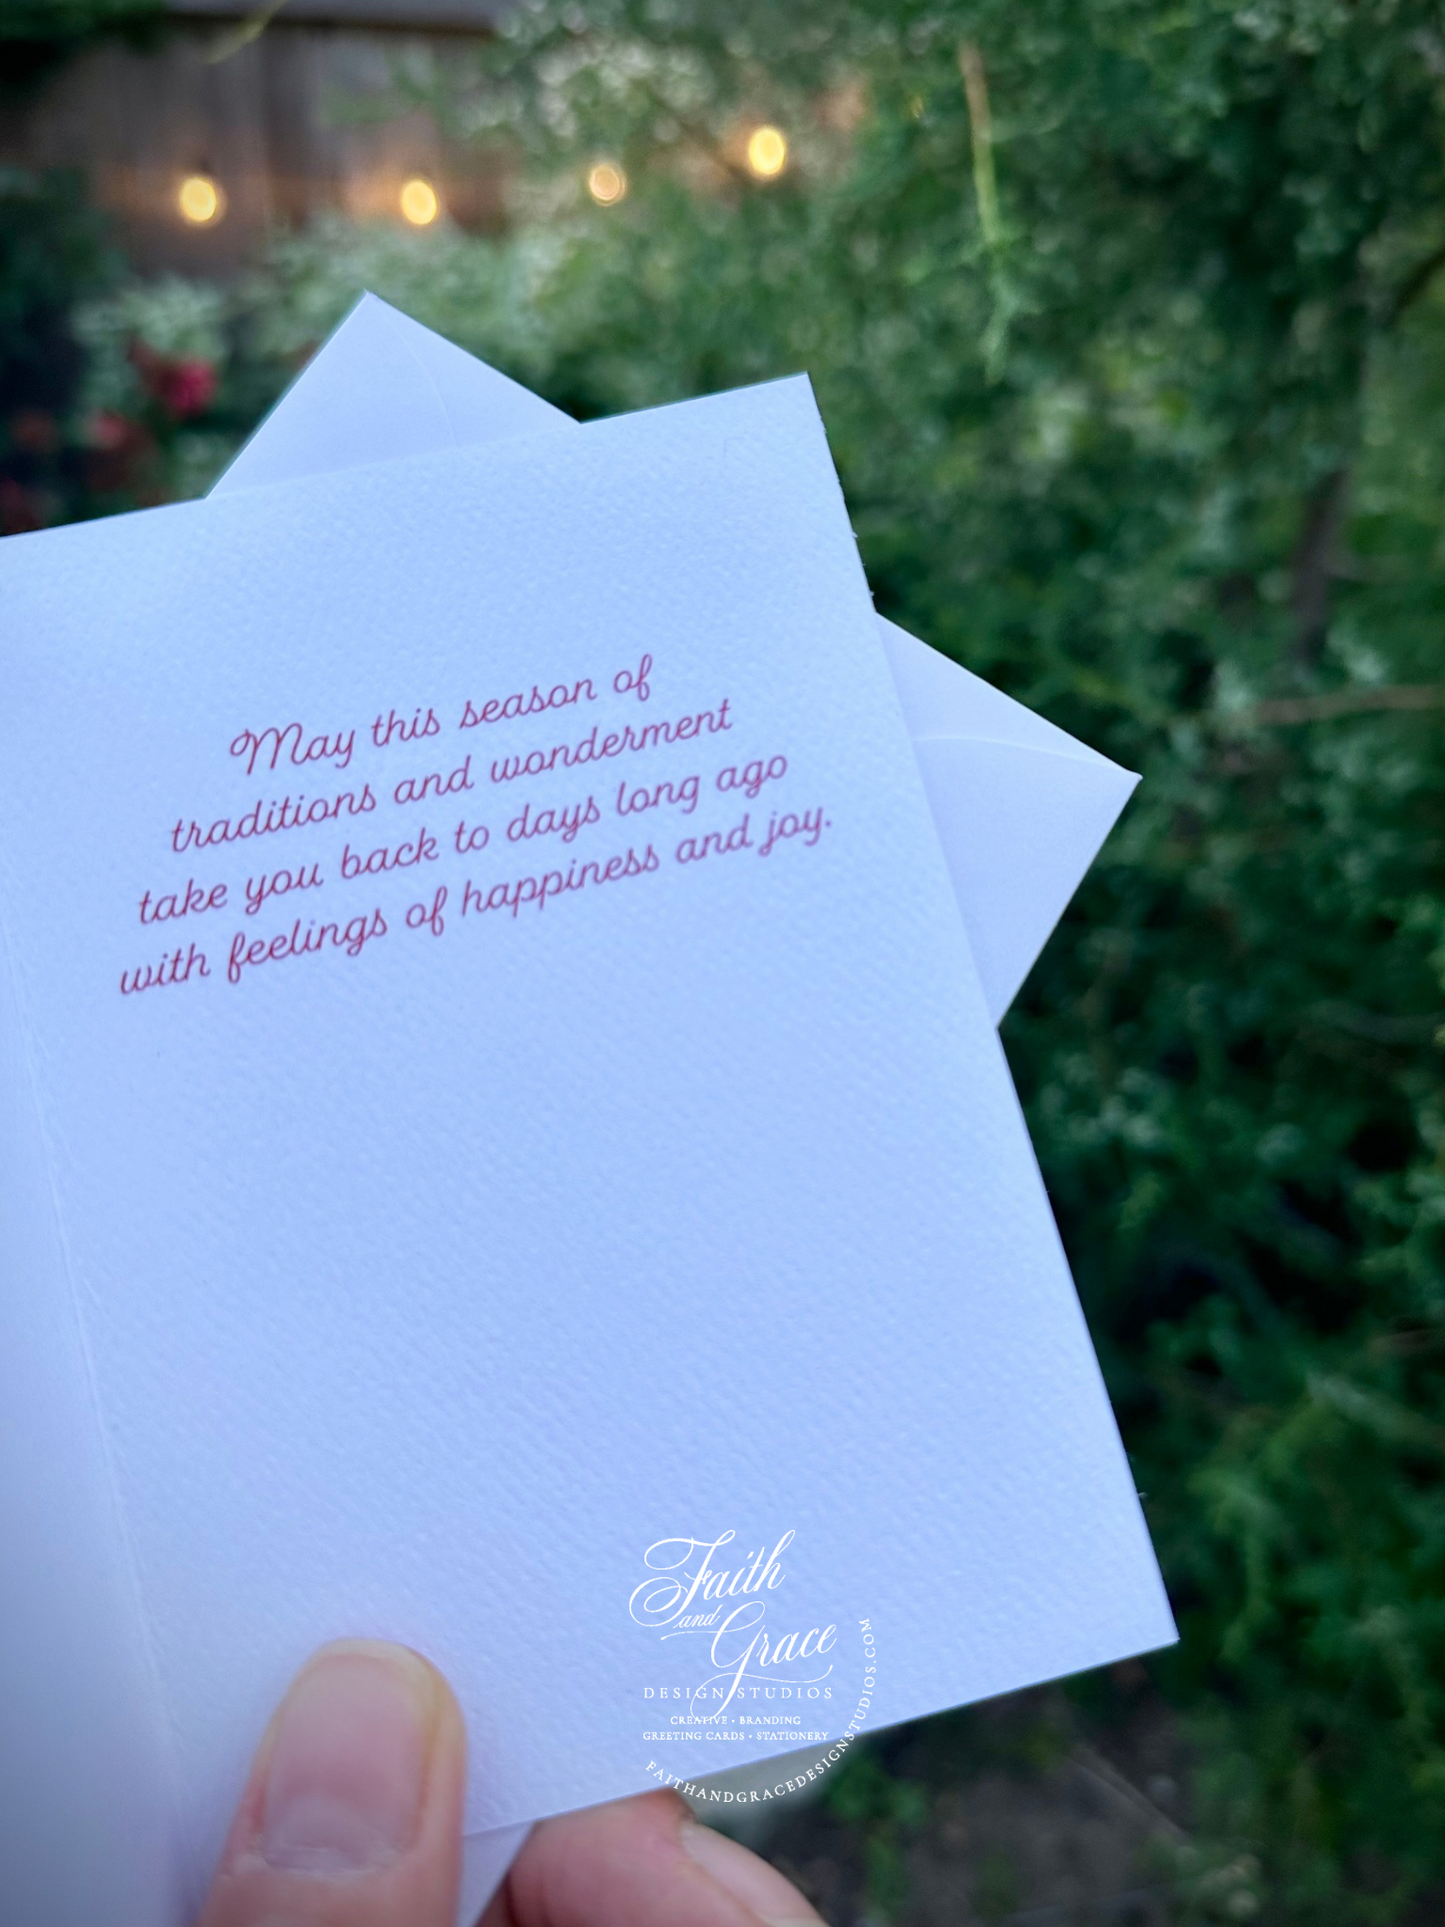 May this season of
traditions and wonderment
take you back to days long ago
with feelings of happiness and joy.
Faith
and
Grace
DESIGN STUDIOS
CREATIVE • BRANDING
GREETING CARDS • STATIONERY
FAITHANDGRACEDESIGNSTUDIOS.COM